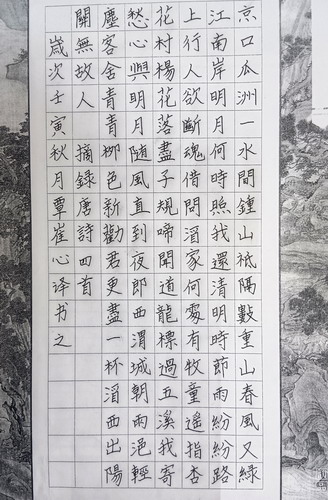 京口瓜洲一水間鍾山祗隔數重山春風又綠
江南岸明月何時照我還清明時節雨紛紛路
上行人欲斷魂借問酒家何處有牧童遙指杏
花村楊花落盡子規啼聞道龍標過五溪我寄
愁心與明月隨風直到夜郎西渭城朝雨浥輕
塵客舍青青柳色新勸君更盡一杯酒西出陽
關無故人摘錄唐詩四首
歲次壬寅秋月覃崔心译书之